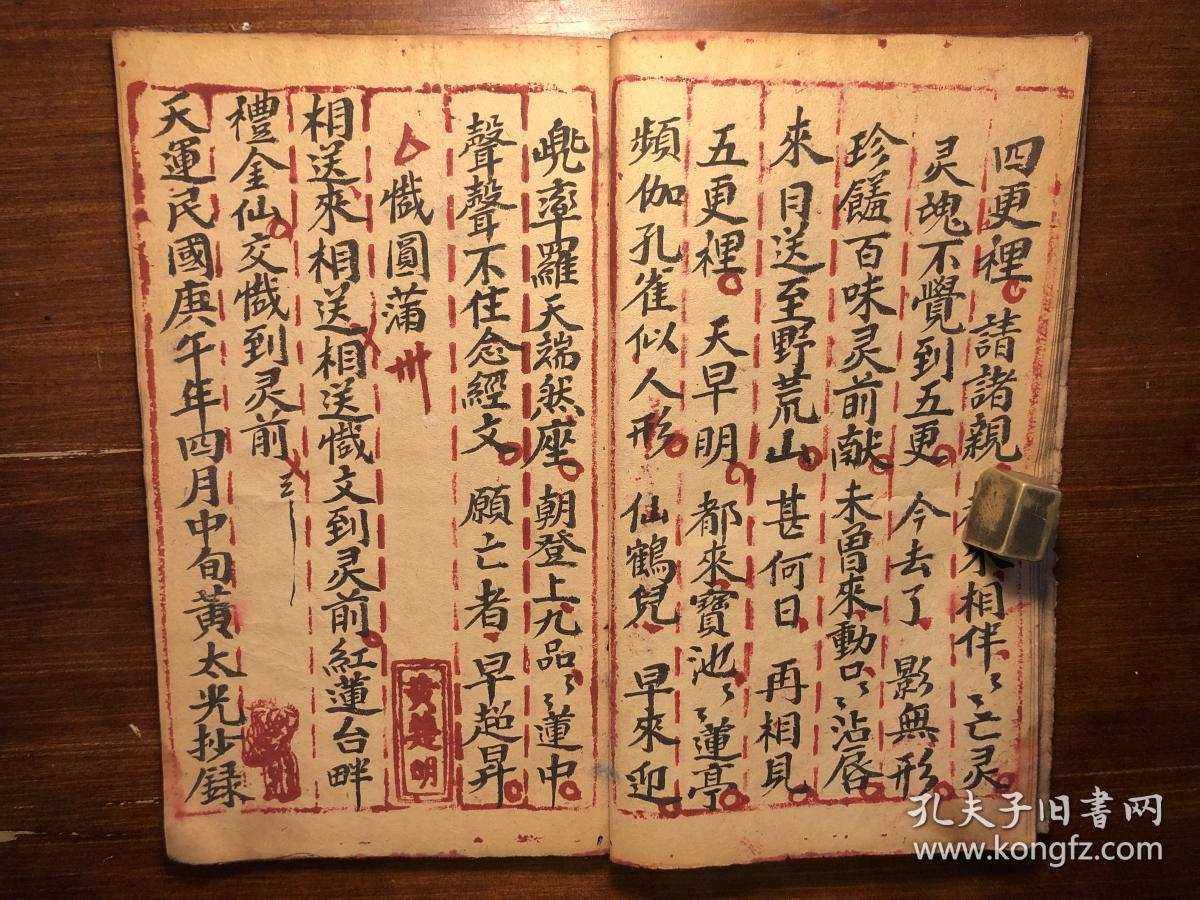 四更裡 請諸親 相伴〻亡灵
灵魂不覺到五更 今去了 影無形
珍饈百味灵前献 未曾來動口〻沾唇
來日送至野荒山 甚何日 再相見
五更裡 天早明 都來寶池〻蓮亭
頻伽孔雀似人形 仙鶴兒 早來迎
兠率羅天端然座 朝登上九品〻蓮中
聲聲不住念經文 願亡者 早超昇
懴圓蒲卌
相送來相送相送懴文到灵前紅蓮台畔
禮金仙交懴到灵前 三
天運民國庚午年四月中旬黄太光抄録
黄楚明
孔夫子旧书网
www.kongfz.com